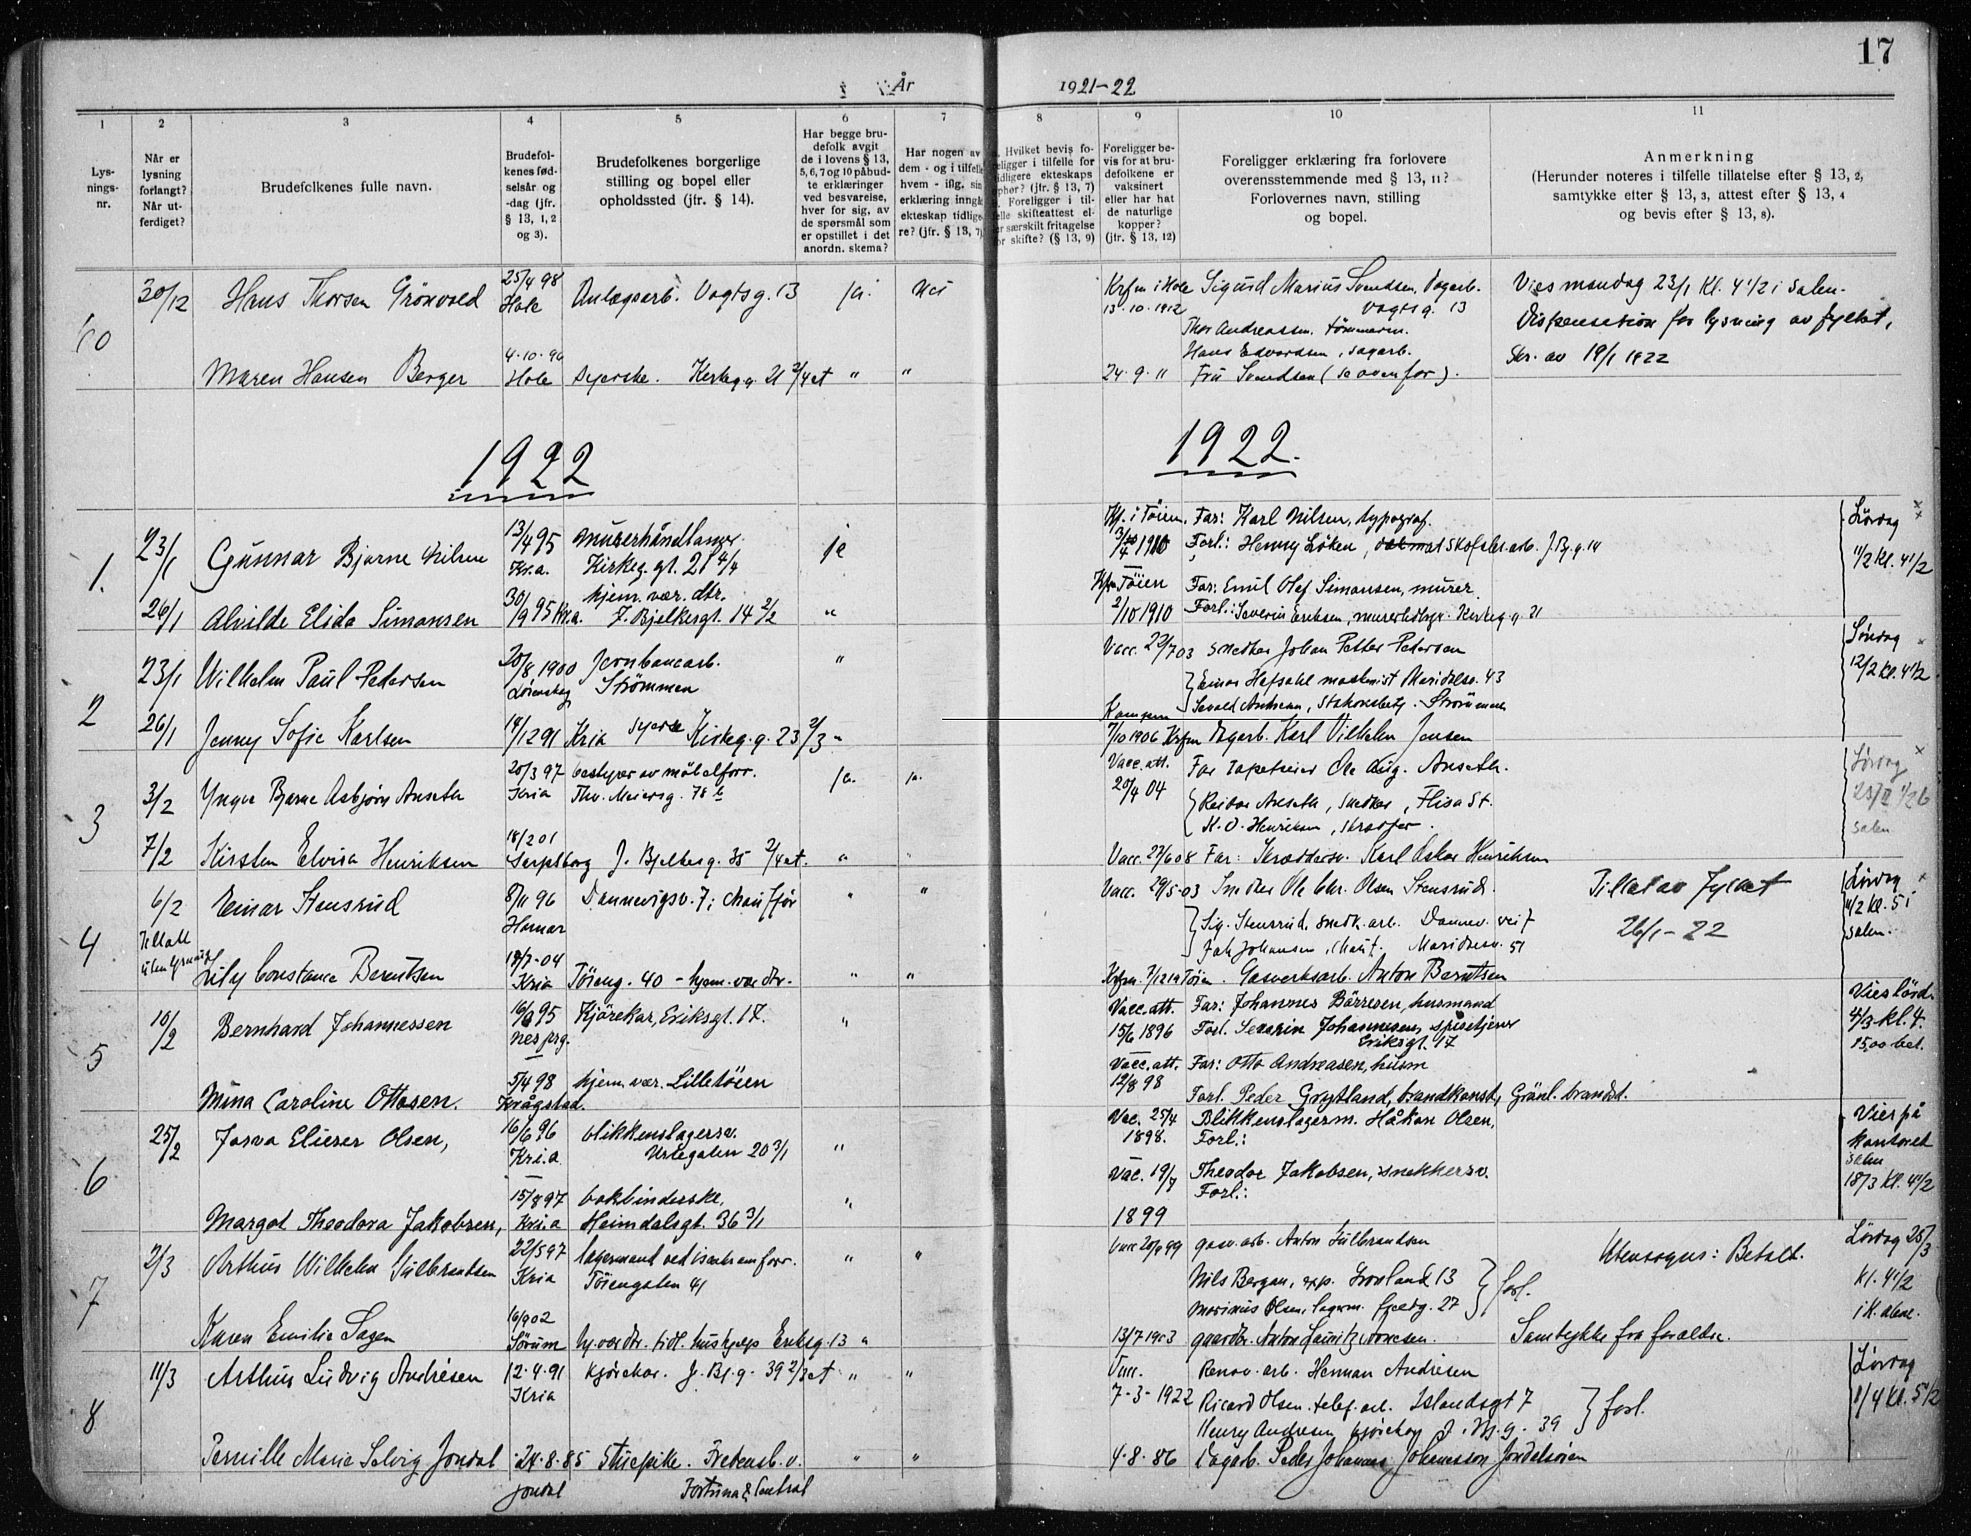 17
År 1921-22
1 2 3 4 5 6 7 8 9 10 11
Lys-
nings-
nr.
Når er
lysning
forlangt?
Når ut-
ferdiget?
Brudefolkenes fulle navn.
Brudefol-
kenes fød-
selsår og
-dag (jfr.
§ 13, 1, 2
og 3).
Brudefolkenes borgerlige
stilling og bopel eller
opholdssted (jfr. § 14).
Har begge bru-
defolk avgit
de i lovens § 13,
5, 6, 7 og 10 påbud-
te erklæringer
ved besvarelse,
hver for sig, av
de spørsmål som
er opstillet i det
anordn. skema?
Har nogen av
dem - og i tilfelle
hvem - iflg. sin
erklæring inngå
ekteskap tidlige
re? (jfr. § 13, 7)
Hvilket bevis fo-
religger i tilfelle for
tidligere ekteskaps
ophør? (jfr. § 13, 7)
Foreligger i til-
felle skifteattest el-
er særskilt fritagelse
for skifte? (§ 13, 9)
Foreligger be-
vis for at bru-
defolkene er
vaksinert
eller har hat
de naturlige
kopper?
(jfr. § 13, 12)
Foreligger erklæring fra forlovere
overensstemmende med § 13, 11?
Forlovernes navn, stilling
og bopel.
Anmerkning
(Herunder noteres i tilfelle tillatelse efter § 13, 2,
samtykke efter § 13, 3, attest efter § 13, 4
og bevis efter § 13, 8).
60 30/12 Hans Thorsen Grönvold 25/4 98 Hole Anlægsarb. Vogtsg. 13 ja. Nei
Krfm i Hole 13.10.1912 Sigurd Marius Svendsen, Dagarb. Vogtsg. 13
Thor Andreassen, tømmerm.
Hans Edvardsen, sagarb.
Vies mandag 23/1 kl. 4 1/2 i salen.
Dispensation for lysning av fylket,
Skr. av 19/1 1922
Maren Hansen Berger 4.10.96 Hole Syerske. Kirkeg. 21 2/4 et " "
24.9.11 Fru Svendsen (se ovenfor).
1922
1922.
1. 23/1 Gunnar Bjarne Nilsen 13/4 95 Kr.a. murerhåndlanger Kirkeg. gt. 21 4/4 ja
Kf. i Töien. 3/4 1910 Far: Karl Nilsen, typograf.
Forl.: Henry Löken, Skofabr. arb. J. Bj. g. 14
Lördag 11/2 kl. 4 1/2
26/1 Alvilde Elida Simonsen 30/9 95 Kr.a. hjem. vær. dtr. J. Bjelkesgt. 14 2/2 "
Kfm Töien 2/10 1910 Far: Emil Olof Simonsen, murer.
Forl.: Severin Eriksen, murerhdlgr. Kirkeg. 21
2 23/1 Wilhelm Paul Pedersen 20/8 1900 Lörenskog Jernbanearb. Strömmen "
Vacc. 29/7 03 Snedker Johan Petter Pedersen
Einar Hafsahl maskinist Maridalsv. 43
Strömmen
Söndag 12/2 kl. 4 1/2
26/1 Jenny Sofie Karlsen 19/12 91 Kria Syerske Kirkeg. g. 23 2/3 "
Kampen 7/10 1906 Krfm dagarb. Karl Vilhelm Jensen
3 3/2 Yngve Bjarne Asbjørn Anseth 20/3 97 Kria bestyrer av möbelforr. Thv. Meiersg. 78 b ja. ja.
Vacc. att. 20/4 04 Far tapetserer Ole Aug. Anseth.
Reidar Anseth, Snedker, Flisa St.
K. O. Henriksen, Skrædder.
Lördag
salen
7/2 Kirsten Elvira Henriksen 18/2 01 Sarpsborg J. Bjelkesg. 35 2/4 et. " "
Vacc. 27/6 08 Far: Skræddersv. Karl Oskar Henriksen
4 6/2 Einar Stensrud 8/11 96 Hamar Dannevigsv. 7, Chauffør " "
Vacc. 29/5-03 Snedker Ole Chr. Olsen Stensrud.
Sig. Stensrud, Snedk. arb. Dannev. vei 7
Joh Johansen, Chauf. Maridalsv. 51
Tillat av Fylket
26/1-22
Lördag 11/2 kl. 5 i salen.
Lily Constance Berntsen 19/7-04 Kria Töieng. 40 - hjem. vær. dtr. " "
Krfm. 7/12 19 Töien. Gasverksarb. Anton Berntsen
5 10/2 Bernhard Johannessen 95 Nes prg. Kjörekar, Eriksgt. 17. "
Vacc. att. 15/6 1896 Far: Johannes Börresen, husmand
Forl. Severin Johannesen, spisetjener Eriksgt. 17
Vies lörd. 4/3 kl. 4. 15,00 bet.
Mina Caroline Ottosen. 5/4 98 Krågstad. hjem. vær. Lilletöien
Vacc. att. 12/8 98 Far: Otto Andreasen, husm
Forl. Peder Grytland, brandkonst., Grönl. brandst.
6 25/2 Josva Elieser Olsen, 16/6 96 Kr.i.a. blikkenslagersv. Urtegaten 20 3/1 "
Vac. 25/4 1898. Blikkenslagerm. Håkon Olsen,
Forl.:
Vies på kontoret salen 18/3 kl. 4 1/2
Margot Theodora Jakobsen, 15/8 97 Kr.i.a bokbinderske, Heimdalsgt. 36 3/1 "
Vac. 19/7 1899 Theodor Jakobsen, snekkersv.
Forl.:
7 2/3 Arthur Wilhelm Gulbrandsen 22/5 97 Kria lagermand ved isenkramforr. Töiengaten 41 " "
Vacc 20/9 99 gasv. arb. Anton Gulbrandsen
Nils Bergan, exp. Grönland 13
Marinius Olsen, lagerm. Gjeldg. 27 } forl.
Utensogns: Betalt.
Lördag 25/3 kl. 4 1/2
Karen Emilie Sagen 16/9 02 Sörum hj. vær dtr. tidl. hushjelp Eriksg. 13 "
13/7 1903 gaardbr. Anton Lauritz Arnesen.
Samtykke fra forældre.
8 11/3 Arthur Ludvig Andrésen 12.4.91 Kria Kjörekar. J. Bj. g. 39 2/3 et " "
Vacc. 7-3-1922 Renov. arb. Herman Andresen
Ricard Olsen. telef. arb. Islandsgt 7
Henry Andresen kjörekar J. Bj. g. 39 } forl.
Lördag 1/4 kl. 5 1/2
Pernille Marie Solvig Jondal 24.8.85 Jondal Stuepike. Fredensb. v. Fortuna & Central " "
4.8.86 Dagarb. Peder Johannes Johannesson Jondalsöien